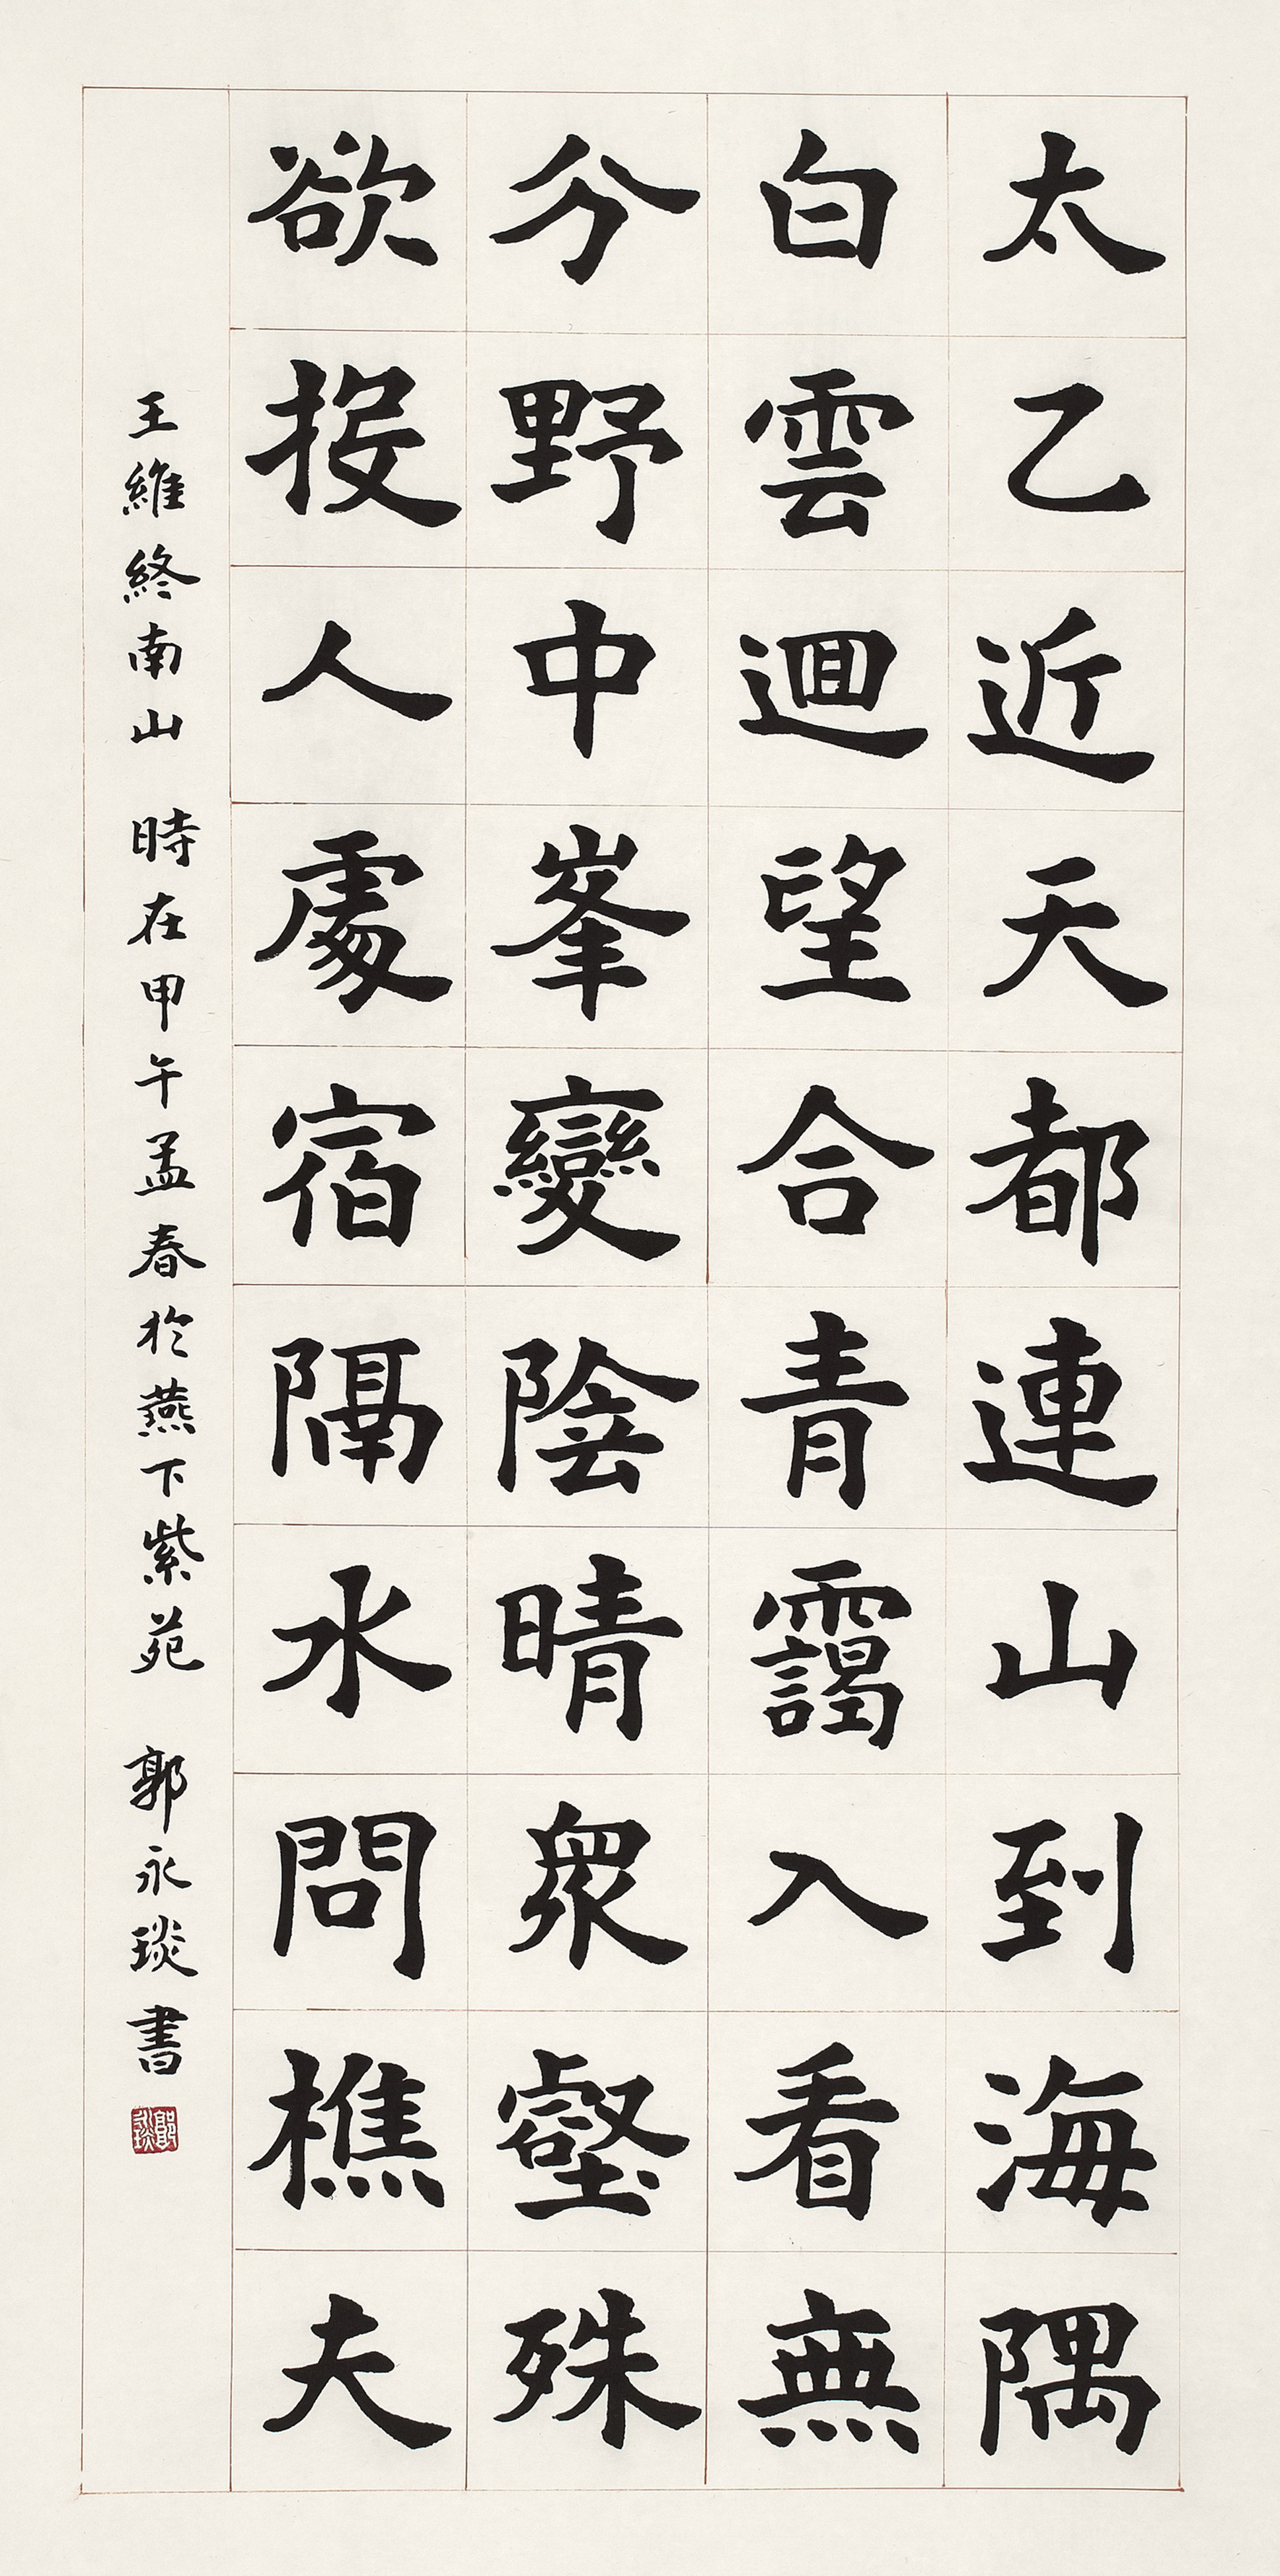 太乙近天都連山到海隅
白雲迴望合青靄入看無
分野中峯變陰晴衆壑殊
欲投人處宿隔水問樵夫
王維終南山 時在甲午孟春於燕下紫苑 郭永琰書
郭永琰